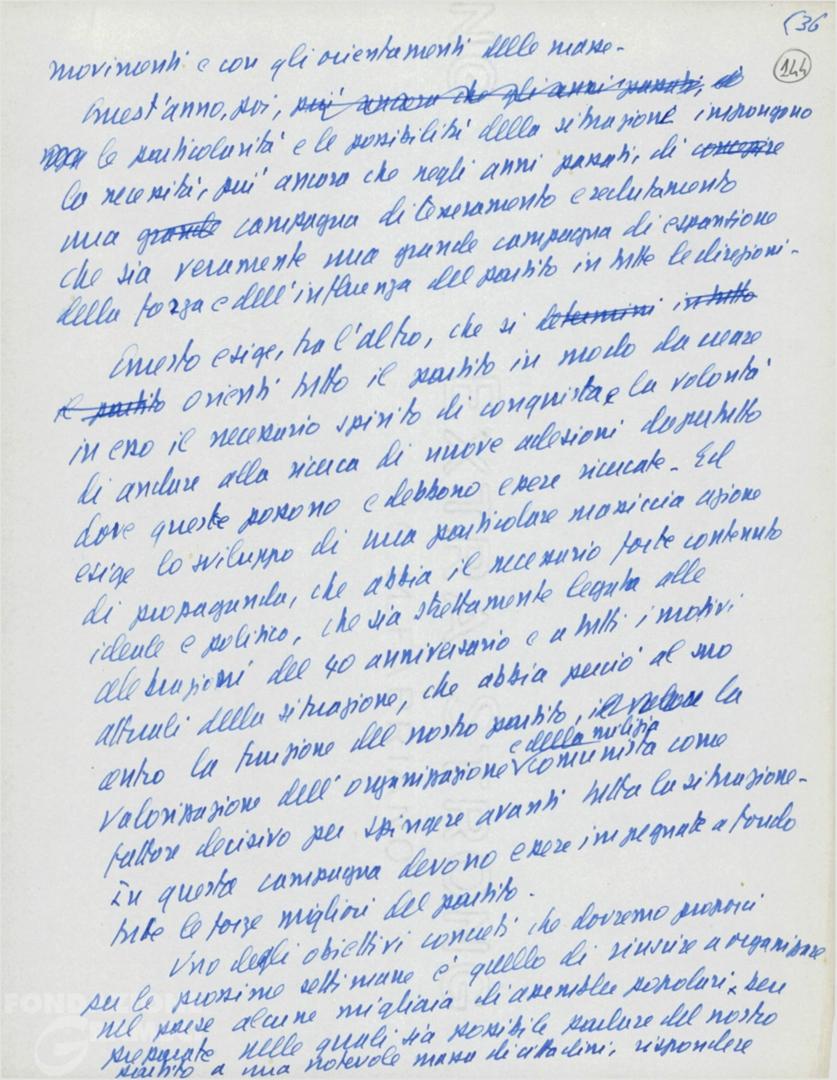 536
144
movimenti e con gli orientamenti delle masse -
Quest'anno, poi, più ancora che gli anni passati,
le particolarità e le possibilità della situazione impongono
la necessità, più ancora che negli anni passati, di concepire
una grande campagna di tesseramento e reclutamento
che sia veramente una grande campagna di espansione
della forza e dell'influenza del partito in tutte le direzioni -
Questo esige, tra l'altro, che si determini in tutto
il partito orienti tutto il partito in modo da creare
in esso il necessario spirito di conquista e la volontà
di andare alla ricerca di nuove adesioni dappertutto
dove queste possono e debbono essere ricercate - Ed
esige lo sviluppo di una particolare massiccia azione
di propaganda, che abbia il necessario forte contenuto
ideale e politico, che sia strettamente legata alle
celebrazioni del 40 anniversario e a tutti i motivi
attuali della situazione, che abbia perciò al suo
centro la funzione del nostro partito, il valore la
e della milizia
valorizzazione dell'organizzazione comunista come
fattore decisivo per spingere avanti tutta la situazione -
In questa campagna devono essere impegnate a fondo
tutte le forze migliori del partito -
Uno degli obiettivi concreti che dovremo proporci
per le prossime settimane è quello di riuscire a organizzare
nel paese alcune migliaia di assemblee popolari, ben
preparate, nelle quali sia possibile parlare del nostro
partito a una notevole massa di cittadini, rispondere
FONDAZIONE
GRAMSCI